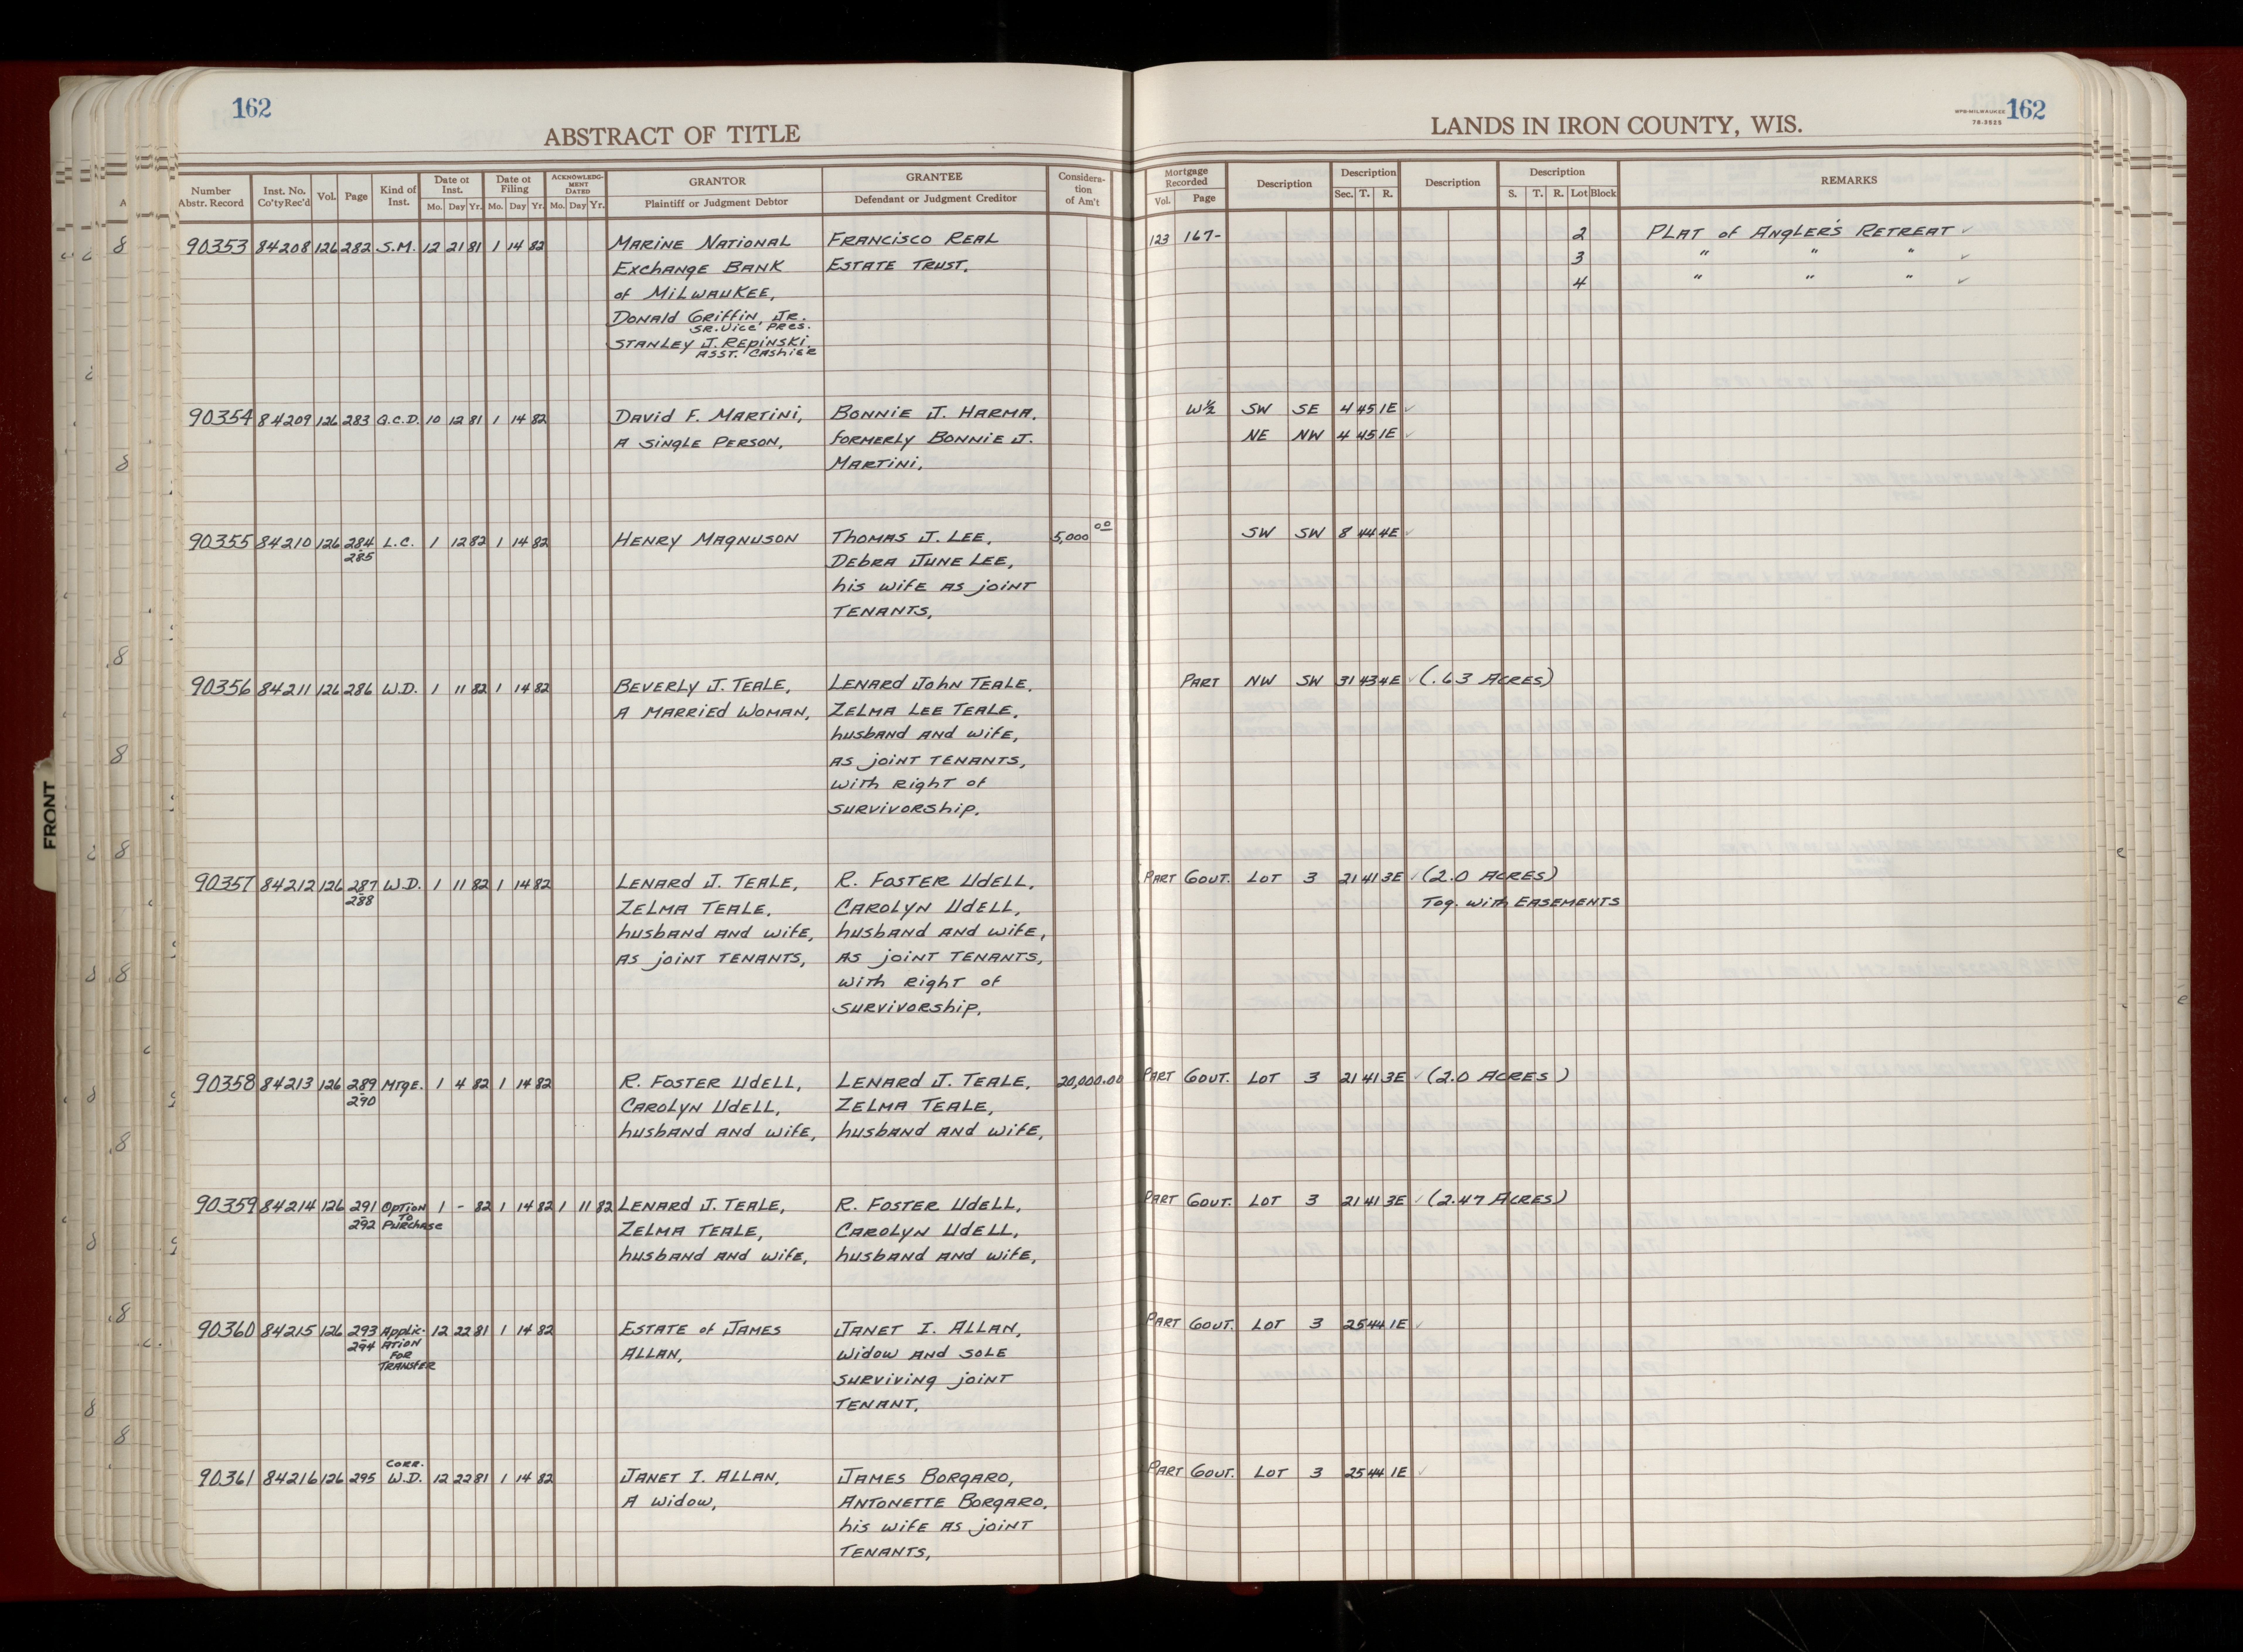 162
ABSTRACT OF TITLE
Number Abstr. Record | Inst. No. Co'ty Rec'd | Vol. | Page | Kind of Inst. | Date of Inst. Mo. Day Yr. | Date of Filing Mo. Day Yr. | ACKNOWLEDGMENT DATED Mo. Day Yr. | GRANTOR Plaintiff or Judgment Debtor | GRANTEE Defendant or Judgment Creditor | Consideration of Am't
90353 84208 126 282 S.M. 12 21 81 1 14 82 MARINE NATIONAL FRANCISCO REAL
EXCHANGE BANK ESTATE TRUST,
of MILWAUKEE,
DONALD GRIFFIN, JR.
SR. VICE PRES.
STANLEY J. REPINSKI.
ASST. CASHIER
90354 84209 126 283 Q.C.D. 10 12 81 1 14 82 DAVID F. MARTINI, BONNIE J. HARMA,
A SINGLE PERSON, FORMERLY BONNIE J.
MARTINI,
90355 84210 126 284 L.C. 1 12 82 1 14 82 HENRY MAGNUSON THOMAS J. LEE, 5,000 00
285 DEBRA JUNE LEE,
his wife as joint
TENANTS,
90356 84211 126 286 W.D. 1 11 82 1 14 82 BEVERLY J. TEALE, LENARD JOHN TEALE,
A MARRIED WOMAN, ZELMA LEE TEALE,
husband and wife,
as joint TENANTS,
with right of
survivorship,
90357 84212 126 287 W.D. 1 11 82 1 14 82 LENARD J. TEALE, R. FOSTER UDELL,
288 ZELMA TEALE, CAROLYN UDELL,
husband and wife, husband and wife,
as joint TENANTS, as joint TENANTS,
with right of
survivorship,
90358 84213 126 289 MTGE. 1 4 82 1 14 82 R. FOSTER UDELL, LENARD J. TEALE, 20,000.00
290 CAROLYN UDELL, ZELMA TEALE,
husband and wife, husband and wife,
90359 84214 126 291 OPTION 1 - 82 1 14 82 1 11 82 LENARD J. TEALE, R. FOSTER UDELL,
292 TO PURCHASE ZELMA TEALE, CAROLYN UDELL,
husband and wife, husband and wife,
90360 84215 126 293 APPLIC- 12 22 81 1 14 82 ESTATE of JAMES JANET I. ALLAN,
294 ATION ALLAN, widow and sole
FOR surviving joint
TRANSFER TENANT,
CORR.
90361 84216 126 295 W.D. 12 22 81 1 14 82 JANET I. ALLAN, JAMES BORGARO,
A widow, ANTONETTE BORGARO,
his wife as joint
TENANTS,
LANDS IN IRON COUNTY, WIS.
WPB-MILWAUKEE
78-3525
162
Mortgage Recorded Vol. Page | Description | Description Sec. T. R. | Description | Description S. T. R. Lot Block | REMARKS
123 167- 2 PLAT of ANGLER'S RETREAT ✓
3 " " " ✓
4 " " " ✓
W½ SW SE 4 45 1E ✓
NE NW 4 45 1E ✓
SW SW 8 44 4E ✓
PART NW SW 31 43 4E ✓ (.63 ACRES)
PART GOVT. LOT 3 21 41 3E ✓ (2.0 ACRES)
Tog. with EASEMENTS
PART GOVT. LOT 3 21 41 3E ✓ (2.0 ACRES)
PART GOVT. LOT 3 21 41 3E ✓ (2.47 ACRES)
PART GOVT. LOT 3 25 44 1E ✓
PART GOVT. LOT 3 25 44 1E ✓
FRONT